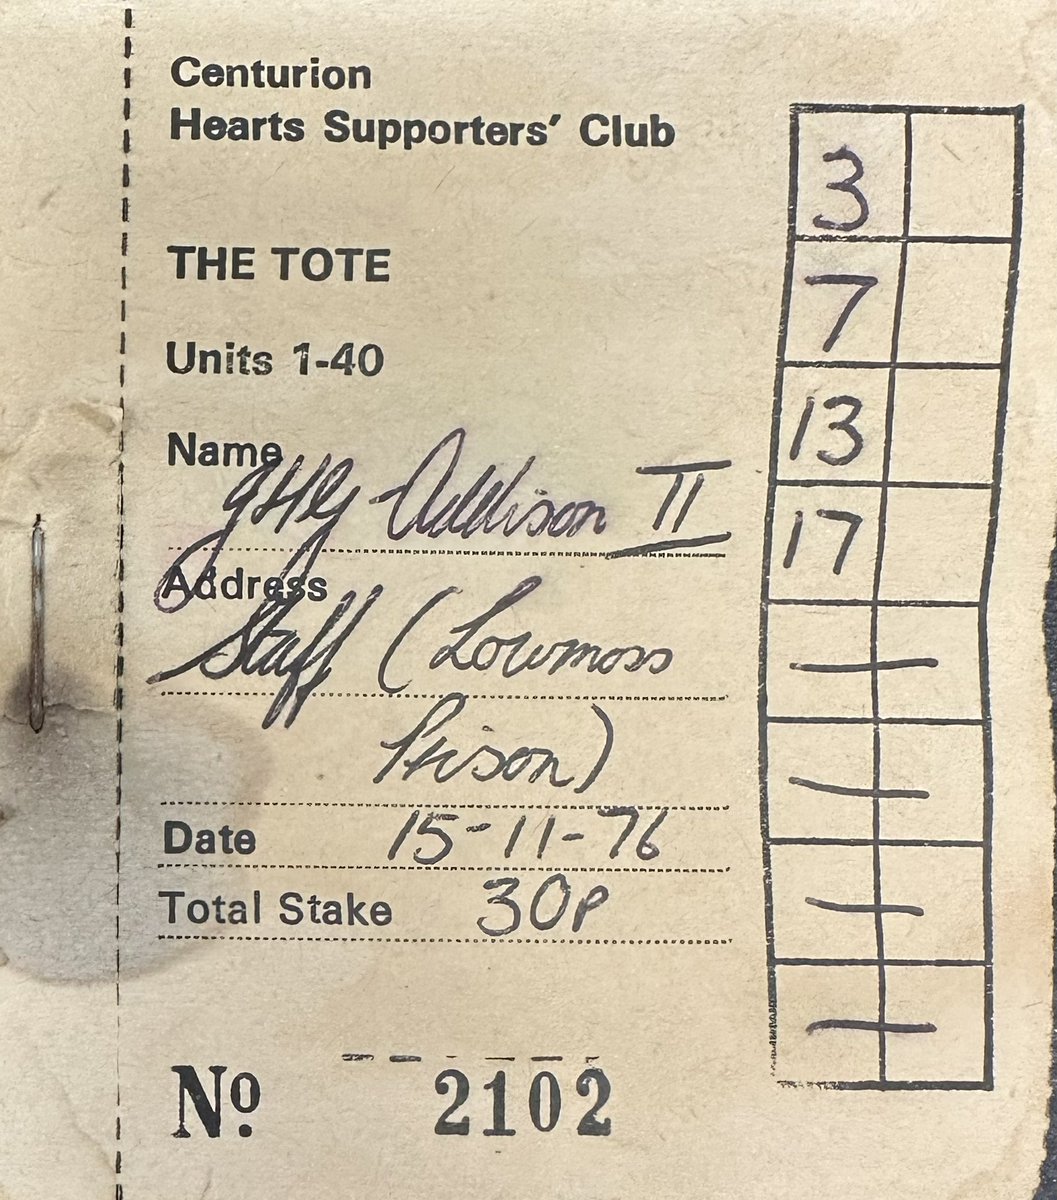 Centurion
Hearts Supporters' Club
THE TOTE
Units 1-40
Name
Addison II
Address
Staff (Lowmoss
Prison)
Date 15-11-76
Total Stake 30p
3
7
13
17
No. 2102